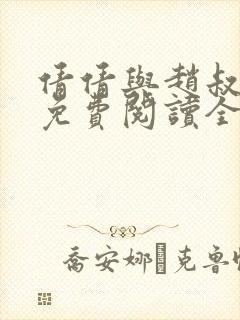 倩倩與趙叔
免費閱讀全
喬安娜·克魯